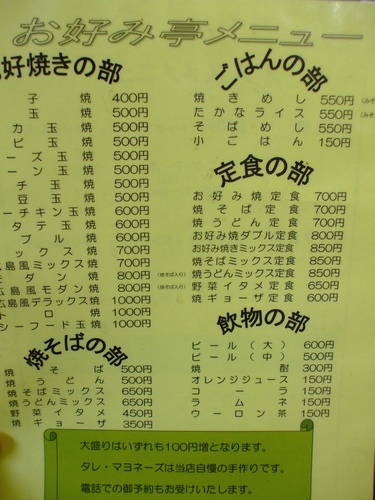 お好み亭メニュー
好焼きの部
子焼 400円
玉焼 500円
カ玉焼 500円
ピ玉焼 500円
ーズ玉焼 500円
ーン玉焼 500円
チ玉焼 500円
豆玉焼 500円
ーチキン玉焼 600円
タテ玉焼 600円
ブル焼 600円
ックス焼 700円
広島風ミックス焼 700円
モダン焼 800円 (焼そば入り)
広島風モダン焼 800円 (焼そば入り)
広島風デラックス焼 1000円
トロ焼 1000円
シーフード玉焼 1000円
焼そばの部
焼そば 500円
焼うどん 500円
焼そばミックス 650円
焼うどんミックス 650円
野菜イタメ 450円
焼ギョーザ 350円
ごはんの部
焼きめし 550円
たかなライス 550円
そばめし 550円
小ごはん 150円
定食の部
お好み焼定食 700円
焼そば定食 700円
焼うどん定食 700円
お好み焼ダブル定食 800円
お好み焼きミックス定食 850円
焼そばミックス定食 850円
焼うどんミックス定食 850円
野菜イタメ定食 650円
焼ギョーザ定食 600円
飲物の部
ビール(大) 600円
ビール(中) 500円
焼酎 300円
オレンジジュース 150円
コーラ 150円
ラムネ 150円
ウーロン茶 150円
大盛りはいずれも100円増となります。
タレ・マヨネーズは当店自慢の手作りです。
電話での御予約もお受けいたします。